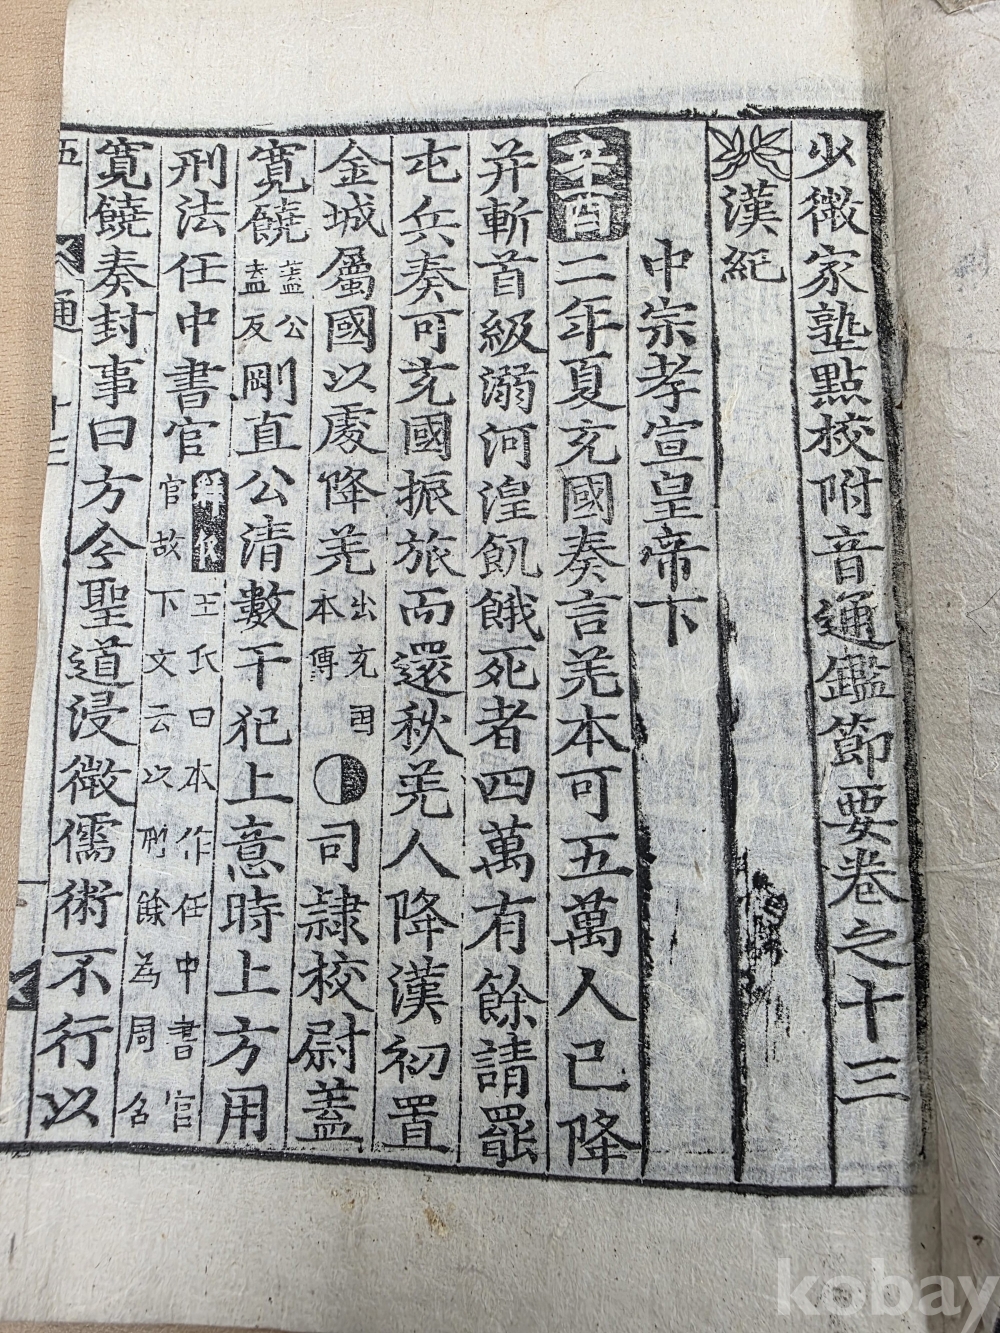 少微家塾點校附音通鑑節要卷之十三
漢紀
中宗孝宣皇帝下
辛酉二年夏充國奏言羌本可五萬人已降
并斬首級溺河湟飢餓死者四萬有餘請罷
屯兵奏可充國振旅而還秋羌人降漢初置
金城屬國以處降羌出充国本傳司隷校尉蓋
寬饒蓋公盍反剛直公清數干犯上意時上方用
刑法任中書官釋義王氏曰本作任中書官官故下文云以刑餘為周召
寬饒奏封事曰方今聖道浸微儒術不行以
通
十三
kobay